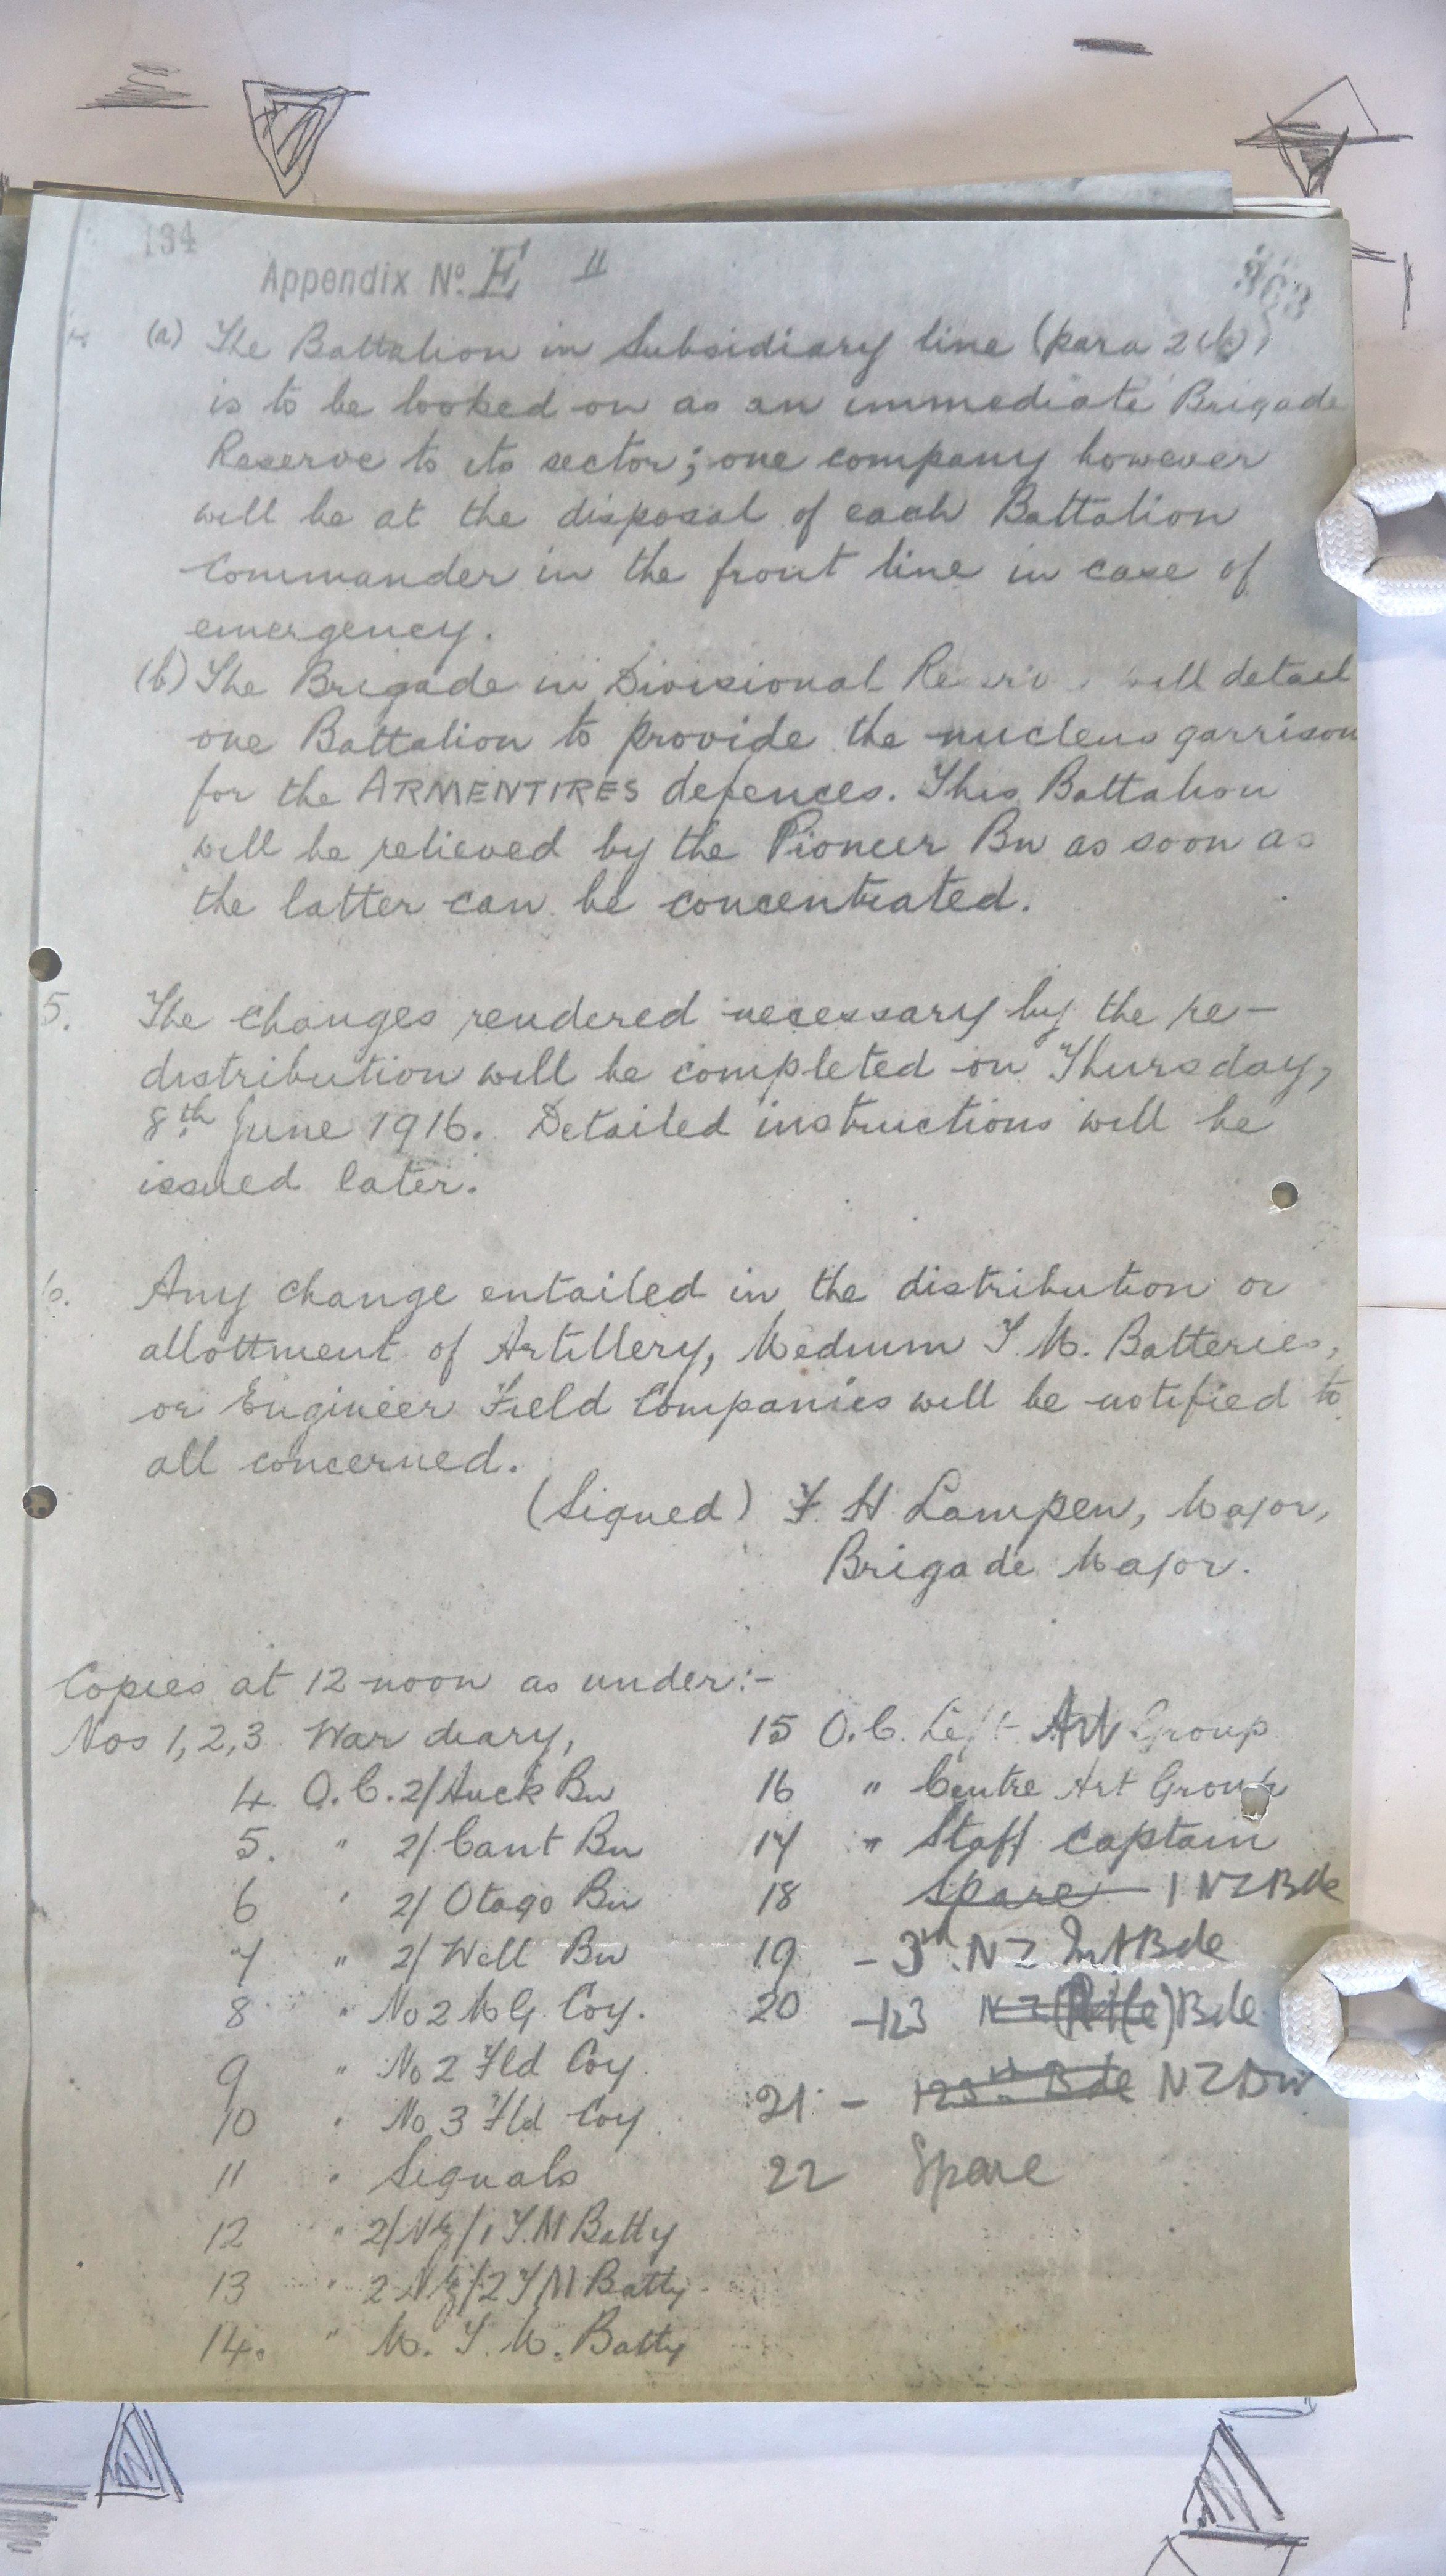 134
Appendix No. E II
363
(a) The Battalion in Subsidiary line (para 2(b))
is to be looked on as an immediate Brigade
Reserve to its sector; one company however
will be at the disposal of each Battalion
Commander in the front line in case of
emergency.
(b) The Brigade in Divisional Reserve will detail
one Battalion to provide the nucleus garrison
for the ARMENTIRES defences. This Battalion
will be relieved by the Pioneer Bn as soon as
the latter can be concentrated.
5. The changes rendered necessary by the re-
distribution will be completed on Thursday,
8th June 1916. Detailed instructions will be
issued later.
6. Any change entailed in the distribution or
allottment of Artillery, Medium T.M. Batteries,
or Engineer Field Companies will be notified to
all concerned.
(Signed) F. H Lampen, Major,
Brigade Major.
Copies at 12 noon as under:-
Nos 1,2,3 War diary,
4 O.C. 2/Auck Bn
5. " 2/Cant Bn
6 " 2/Otago Bn
7 " 2/Well Bn
8 " No 2 M G. Coy.
9 " No 2 Fld Coy
10 " No 3 Fld Coy
11 " Signals
12 " 2/NZ/1 T.M Batty
13 " 2 NZ/2 T M Batty
14. " M. T. M. Batty
15 O.C. Left Art Group
16 " Centre Art Group
17 " Staff Captain
18 Spare 1 NZ Bde
19 - 3rd NZ Inf Bde
20 - 123 NZ (Rifle) Bde
21 - 123rd Bde NZ Div
22 Spare